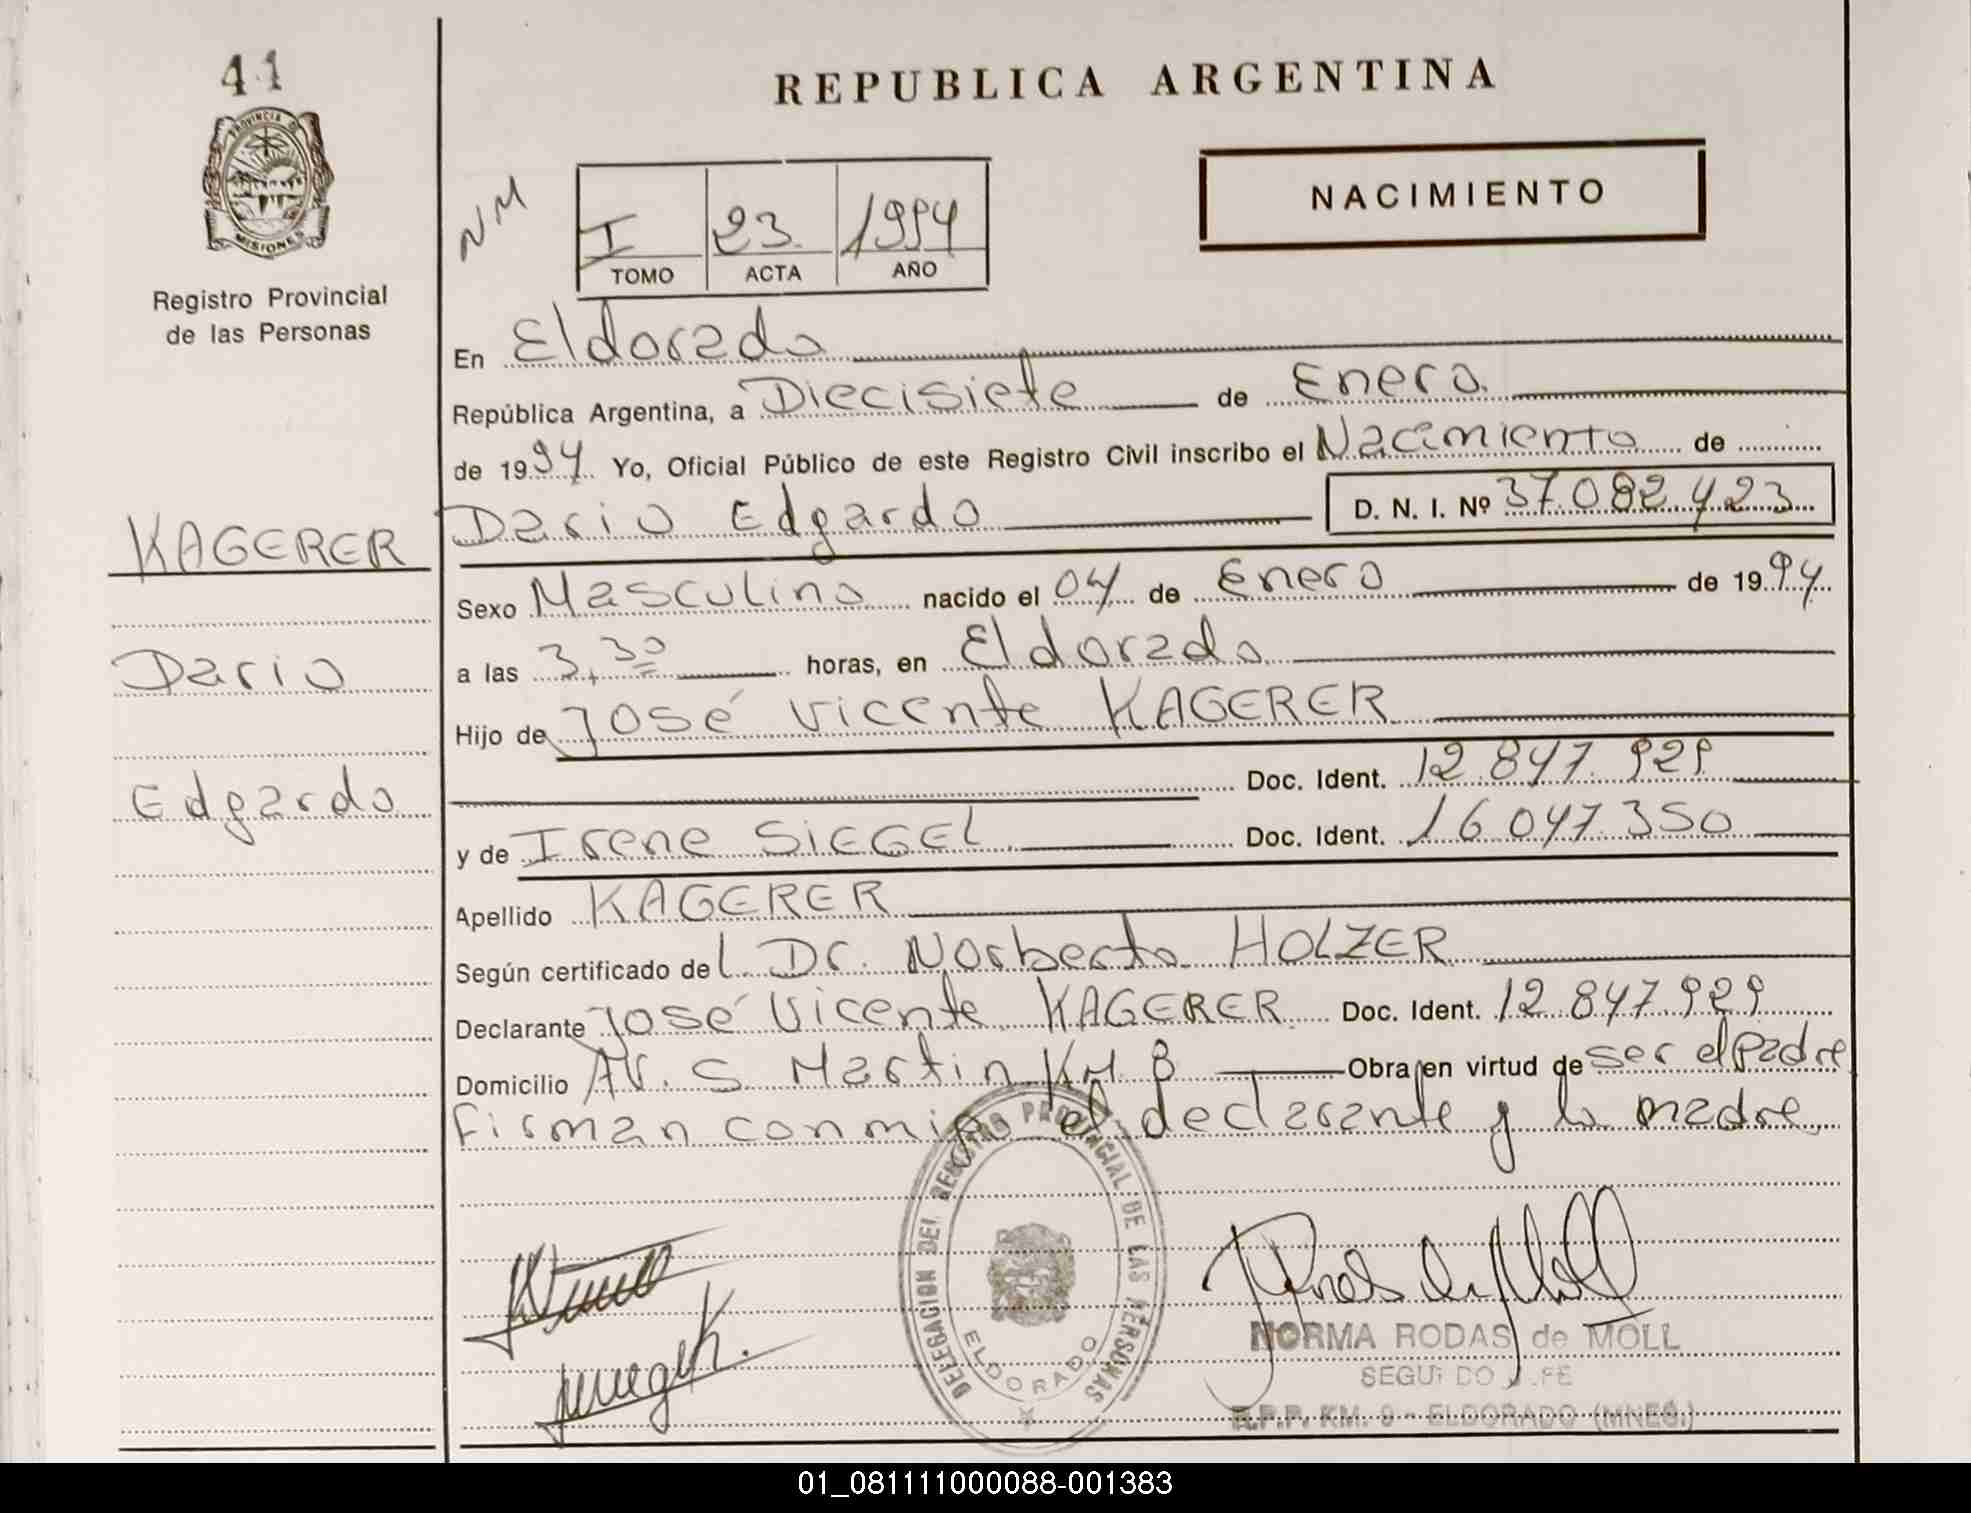 41
REPUBLICA ARGENTINA
PROVINCIA DE
MISIONES
Registro Provincial
de las Personas
NM
I 23 1994
TOMO ACTA AÑO
NACIMIENTO
En Eldorado
República Argentina, a Diecisiete de Enero
de 1994 Yo, Oficial Público de este Registro Civil inscribo el Nacimiento de
KAGERER
Dario Edgardo D. N. I. Nº 37.082.423
Sexo Masculino nacido el 04 de Enero de 1994
Dario
a las 3,30 horas, en Eldorado
Hijo de José Vicente KAGERER
Doc. Ident. 12.847.929
Edgardo
y de Irene SIEGEL Doc. Ident. 16.047.350
Apellido KAGERER
Según certificado del Dr. Norberto HOLZER
Declarante José Vicente KAGERER Doc. Ident. 12.847.929
Domicilio AV. S. Martin KM. 8 Obra en virtud de ser el padre
Firman conmigo el declarante y la madre
DELEGACION DEL REGISTRO PROVINCIAL DE LAS PERSONAS
ELDORADO
NORMA RODAS de MOLL
SEGUNDO J.FE
R.P.P. KM. 9 - ELDORADO (MNES.)
01_081111000088-001383